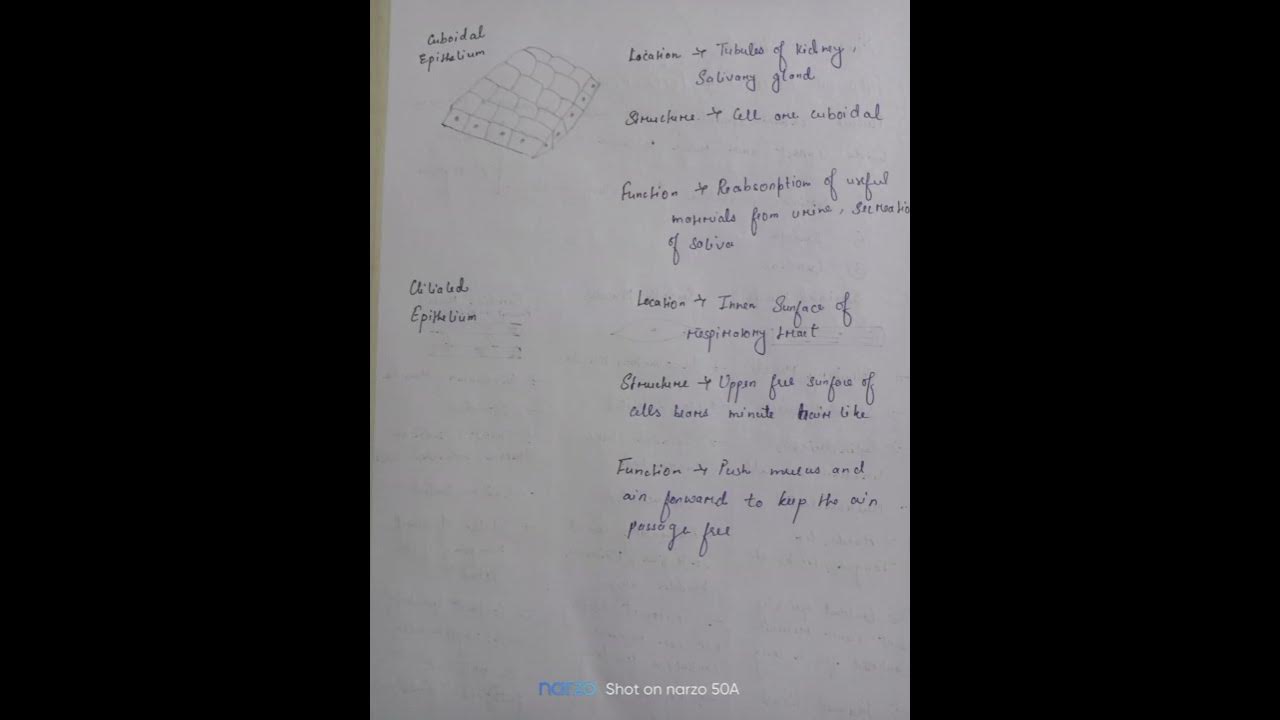 Cuboidal
Epithelium
Location → Tubules of kidney,
Salivary gland
Structure → Cell are cuboidal
Function → Reabsorption of useful
materials from urine, Secreatio
of saliva
Ciliated
Epithelium
Location → Inner Surface of
respiratory tract
Structure → Upper free surface of
cells bears minute hair like
Function → Push mucus and
air forward to keep the air
passage free
narzo Shot on narzo 50A